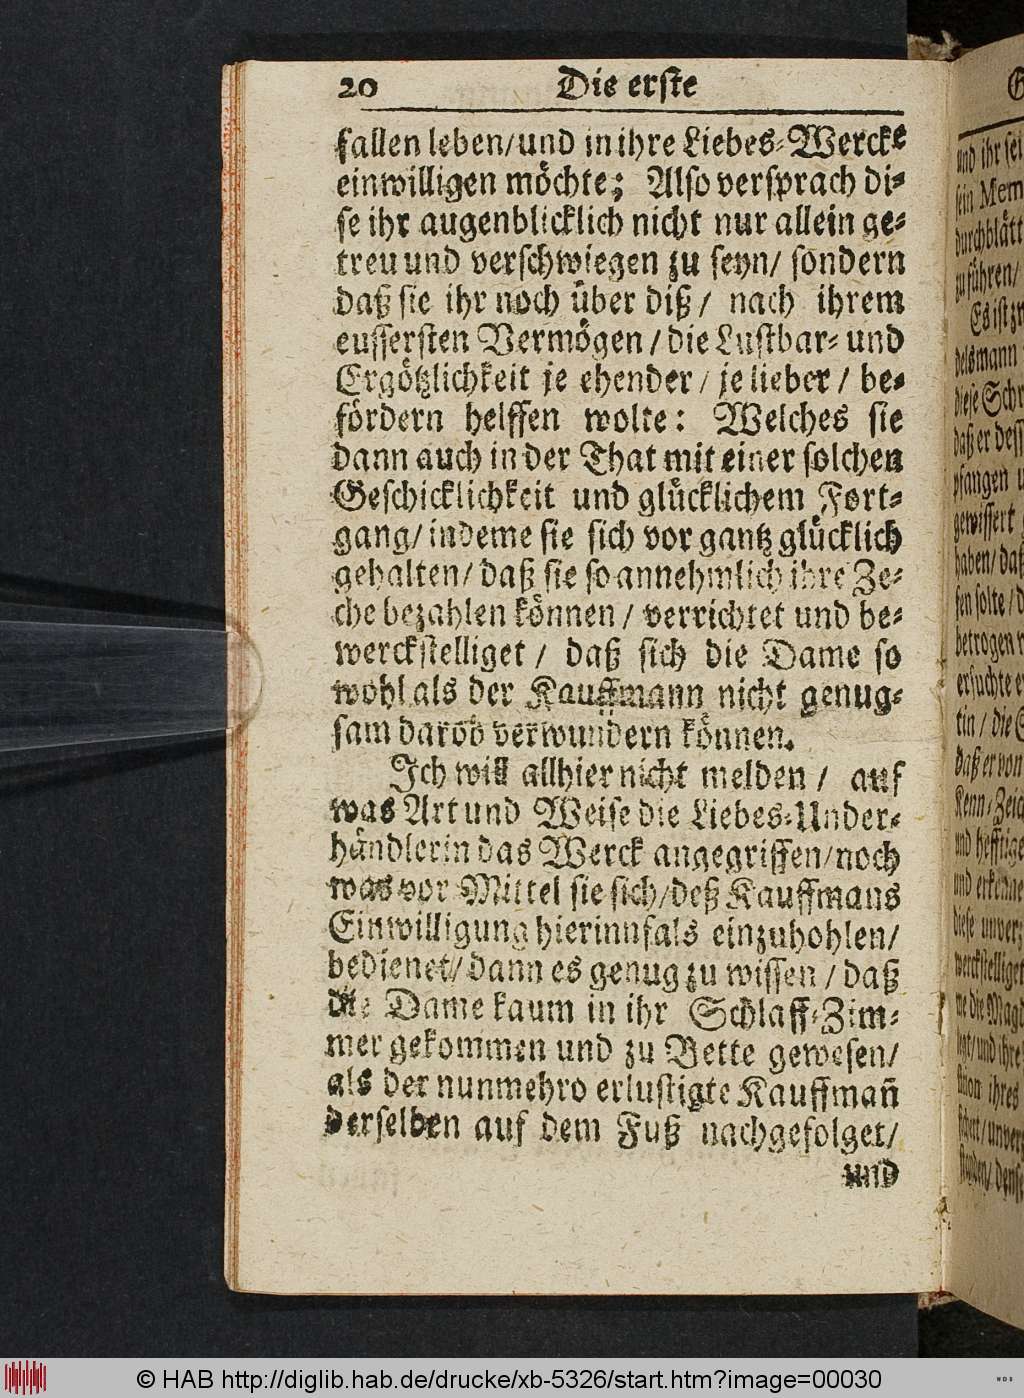 20 Die erste
fallen leben/und in ihre Liebes-Wercke
einwilligen möchte; Also versprach di-
se ihr augenblicklich nicht nur allein ge-
treu und verschwiegen zu seyn/ sondern
daß sie ihr noch über diß/ nach ihrem
eussersten Vermögen/die Lustbar- und
Ergötzlichkeit je ehender/ je lieber/ be-
fördern helffen wolte: Welches sie
dann auch in der That mit einer solchen
Geschicklichkeit und glücklichem Fort-
gang/ indeme sie sich vor gantz glücklich
gehalten/ daß sie so annehmlich ihre Ze-
che bezahlen können/ verrichtet und be-
werckstelliget/ daß sich die Dame so
wohl als der Kauffmann nicht genug-
sam darob verwundern können.
Ich will allhier nicht melden/ auf
was Art und Weise die Liebes-Under-
händlerin das Werck angegriffen/noch
was vor Mittel sie sich/deß Kauffmans
Einwilligung hierinnfals einzuhohlen/
bedienet/ dann es genug zu wissen/ daß
die Dame kaum in ihr Schlaff-Zim-
mer gekommen und zu Bette gewesen/
als der nunmehro erlustigte Kauffmañ
derselben auf dem Fuß nachgefolget/
und
und ihr sei
sein Mem
durchblätt
zu führen/
Es ist zw
delsmann
diese Schr
daß er dess
pfangen u
gewissert
haben/ daß
sen solte/ d
betrogen w
ersuchte e
tin/ die S
daß er von
Kenn-Zeic
und hefftige
und erkenne
diese unver
werckstelliget
ne die Magd
und ihre
ihres
© HAB http://diglib.hab.de/drucke/xb-5326/start.htm?image=00030